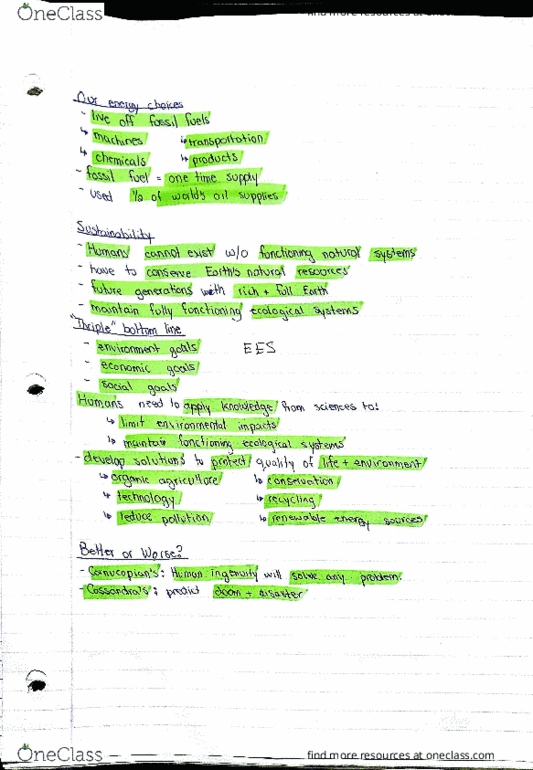 OneClass
find more resources at oneclass.com
Our energy choices
- live off fossil fuels
↳ machines ↳ transportation
↳ chemicals ↳ products
- fossil fuel = one time supply
- used ½ of worlds oil supplies
Sustainability
- Humans cannot exist w/o functioning natural systems
- have to conserve Earth's natural resources
- future generations with rich + full Earth
- maintain fully functioning ecological systems
"Thriple" bottom line
- environment goals EES
- economic goals
- social goals
Humans need to apply knowledge from sciences to:
↳ limit environmental impacts
↳ maintain functioning ecological systems
- develop solutions to protect quality of life + environment
↳ organic agriculture ↳ conservation
↳ technology ↳ recycling
↳ reduce pollution ↳ renewable energy sources
Better or Worse?
- Cornucopian's: Human ingenuity will solve any problem.
- Cassandra's: predict doom + disaster
OneClass
find more resources at oneclass.com